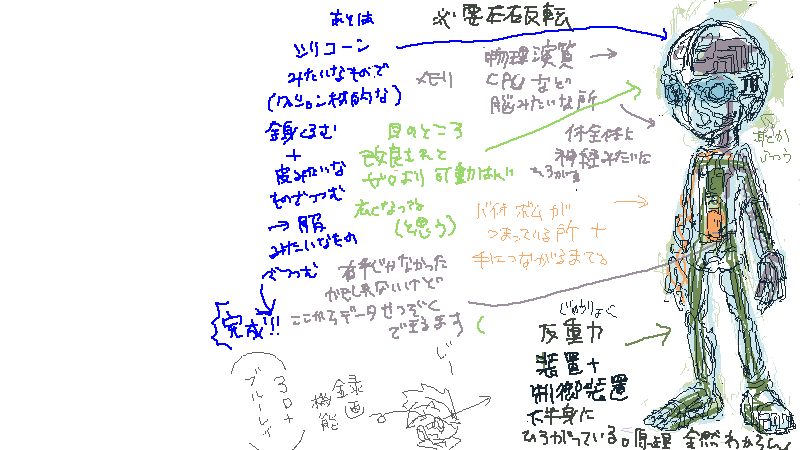 あとは
シリコーン
みたいなもので
(クッション材的な)
全身くるむ
+
皮みたいな
ものでつつむ
→服
みたいなもの
でつつむ
完成!!
※要左右反転
メモリ
物理演算
CPUなど
脳みたいな所
体全体に
神経みたいに
目のところ
改良されて
ゼロより可動はんい
広くなってる
(と思う)
バイオボムが
つまっている所+
手につながるまでる
右手じゃなかった
かもしれないけど
ここからデータせつぞく
できるます
じゅうりょく
反重力
装置+
制御装置
下半身に
ひろがっている。原理全然わからん
3D+
ブルーレイ
録画
機能
じー